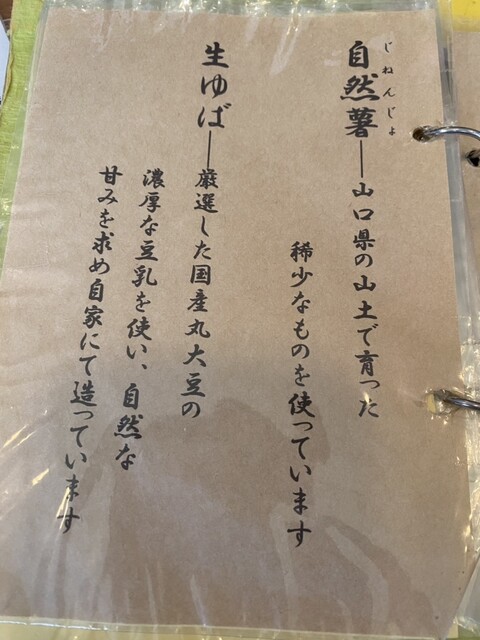 じねんじょ
自然薯―山口県の山土で育った
稀少なものを使っています
生ゆば―厳選した国産丸大豆の
濃厚な豆乳を使い、自然な
甘みを求め自家にて造っています